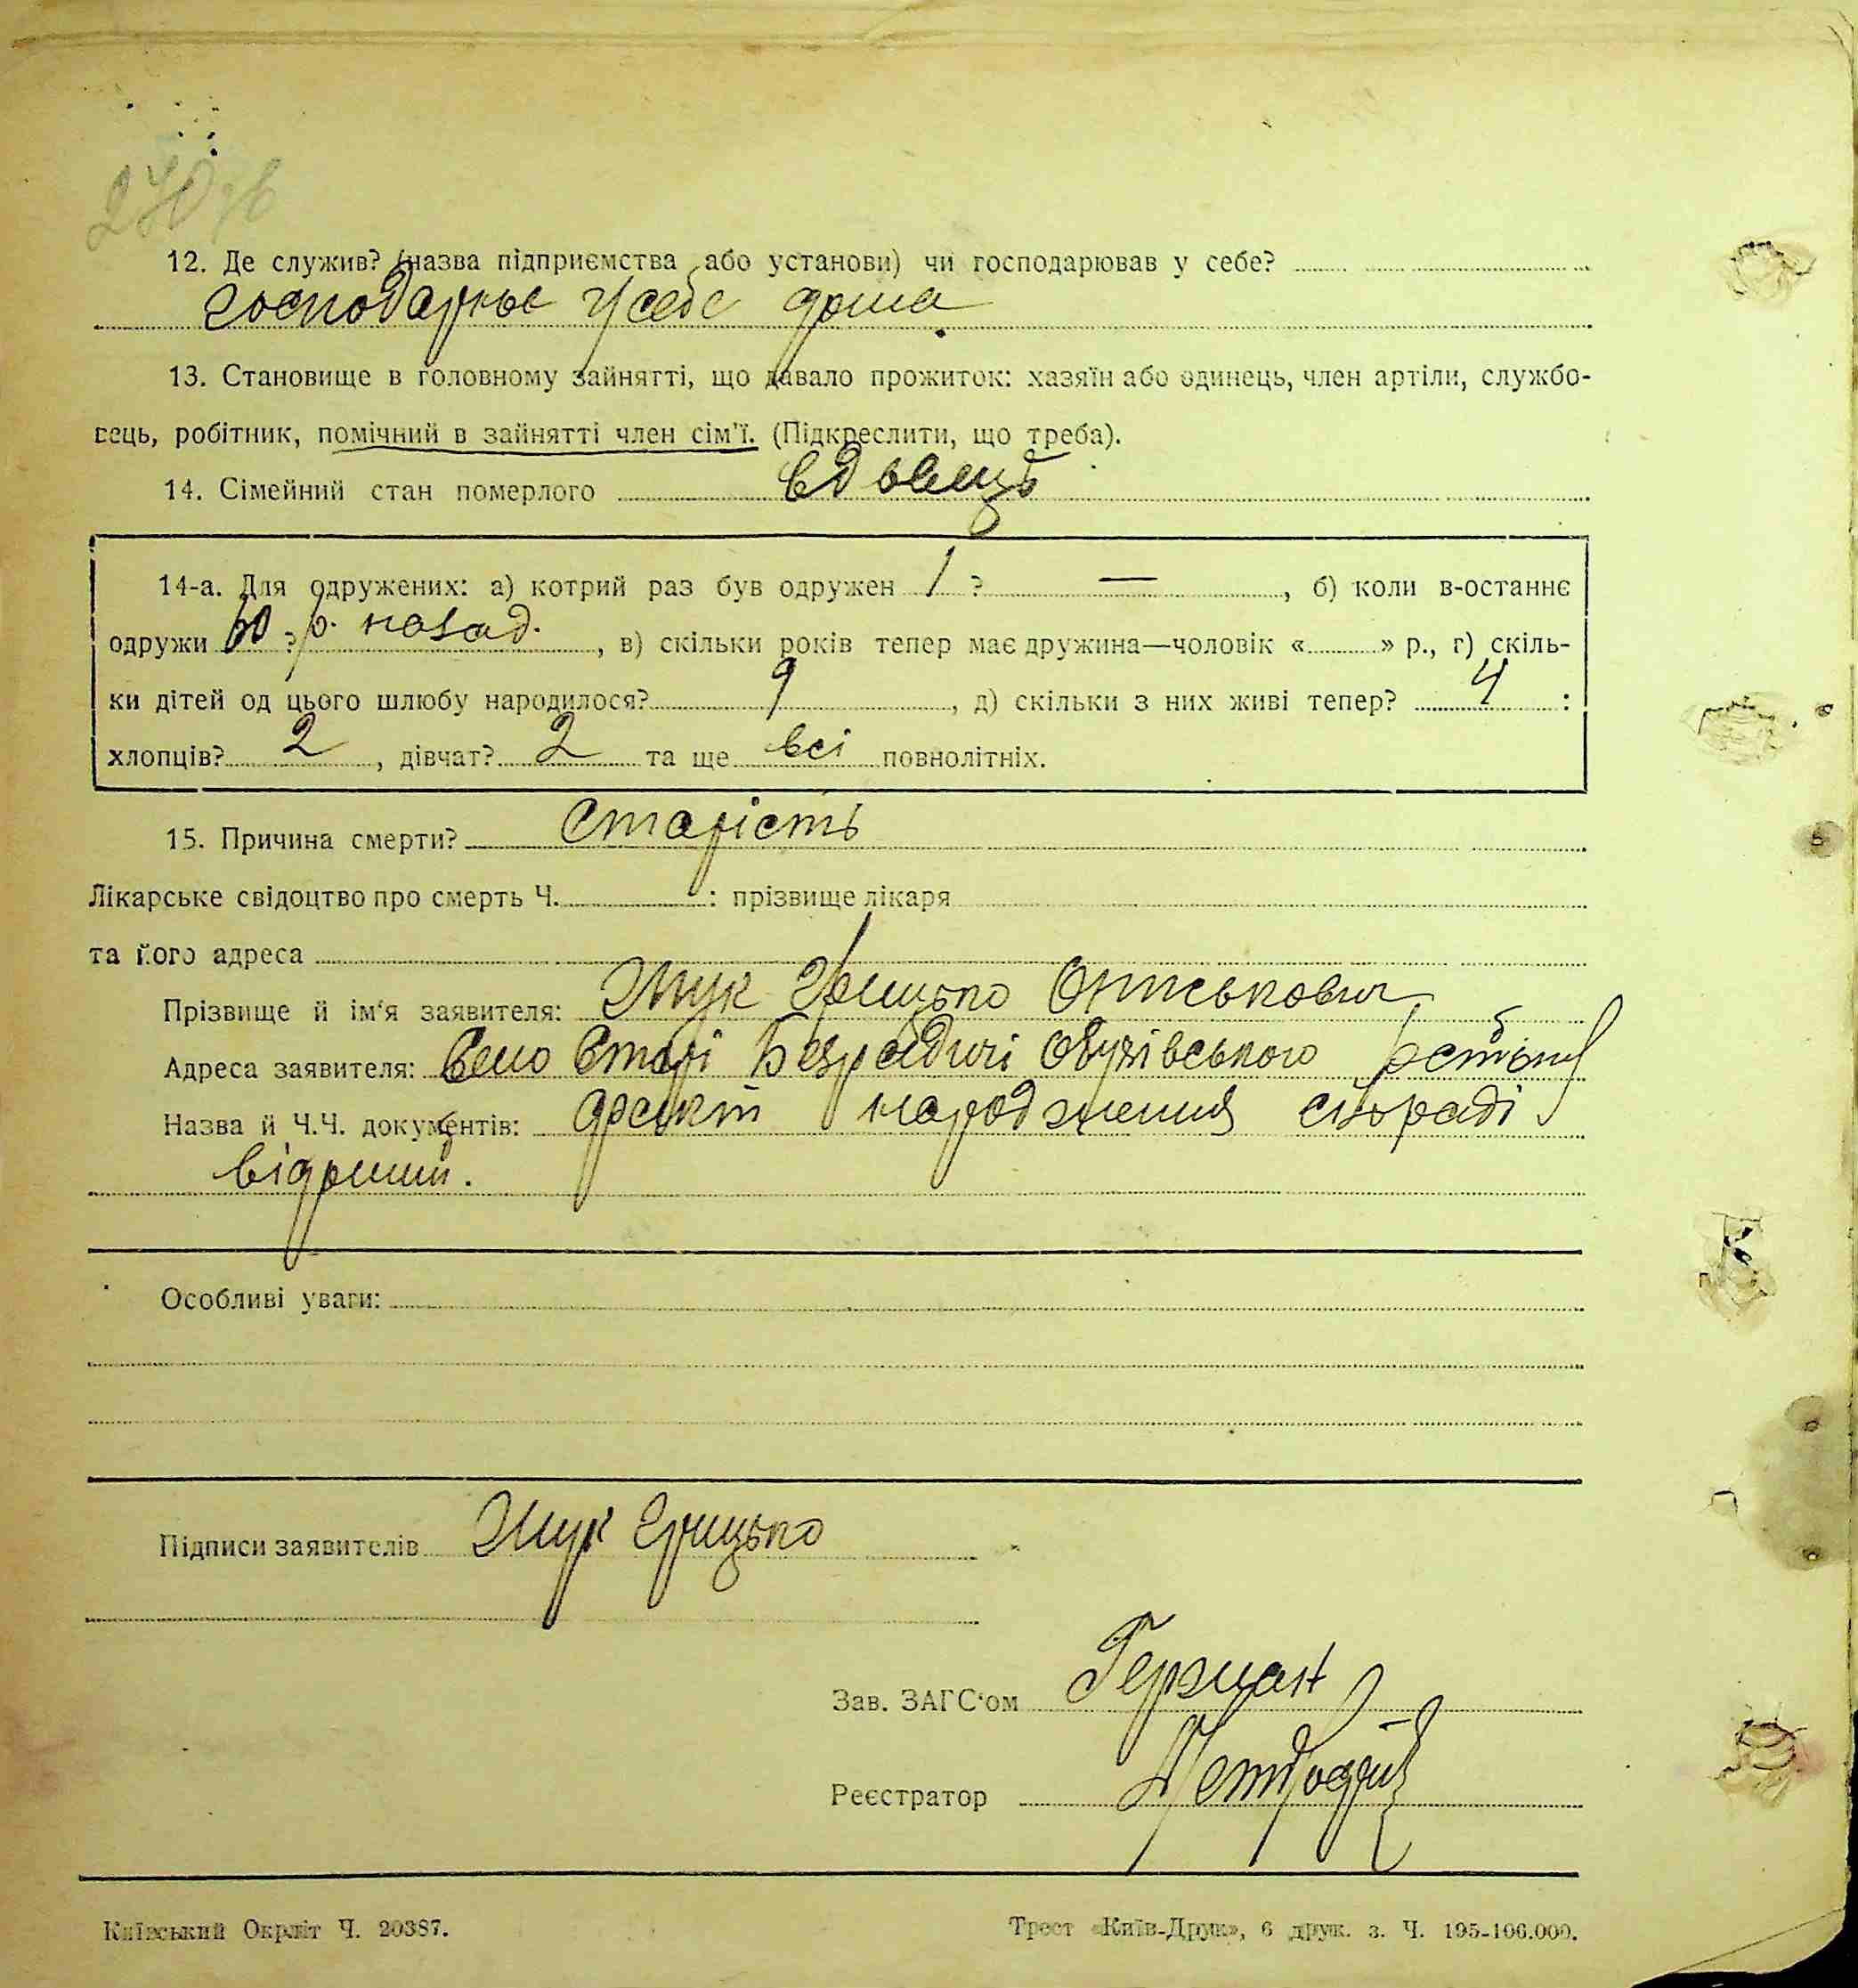 270 зв
12. Де служив? (назва підприємства або установи) чи господарював у себе?
господарює у себе дома
13. Становище в головному зайнятті, що давало прожиток: хазяїн або одинець, член артіли, службо-
вець, робітник, помічний в зайнятті член сім'ї. (Підкреслити, що треба).
14. Сімейний стан померлого вдовець
14-а. Для одружених: а) котрий раз був одружен 1 ? —, б) коли в-останнє
одружи 60 ? р. назад., в) скільки років тепер має дружина—чоловік « » р., г) скіль-
ки дітей од цього шлюбу народилося? 9, д) скільки з них живі тепер? 4 :
хлопців? 2, дівчат? 2 та ще всі повнолітніх.
15. Причина смерти? Старість
Лікарське свідоцтво про смерть Ч. : прізвище лікаря
та його адреса
Прізвище й ім'я заявителя: Жук Грицько
Адреса заявителя: Село Старі Безрадичі Обухівського
Назва й Ч.Ч. документів: народження сільраді
Особливі уваги:
Підписи заявителів Жук Грицько
Зав. ЗАГС'ом
Реєстратор
Київський Окрліт Ч. 20387.
Трест «Київ-Друк», 6 друк. з. Ч. 195-106.000.